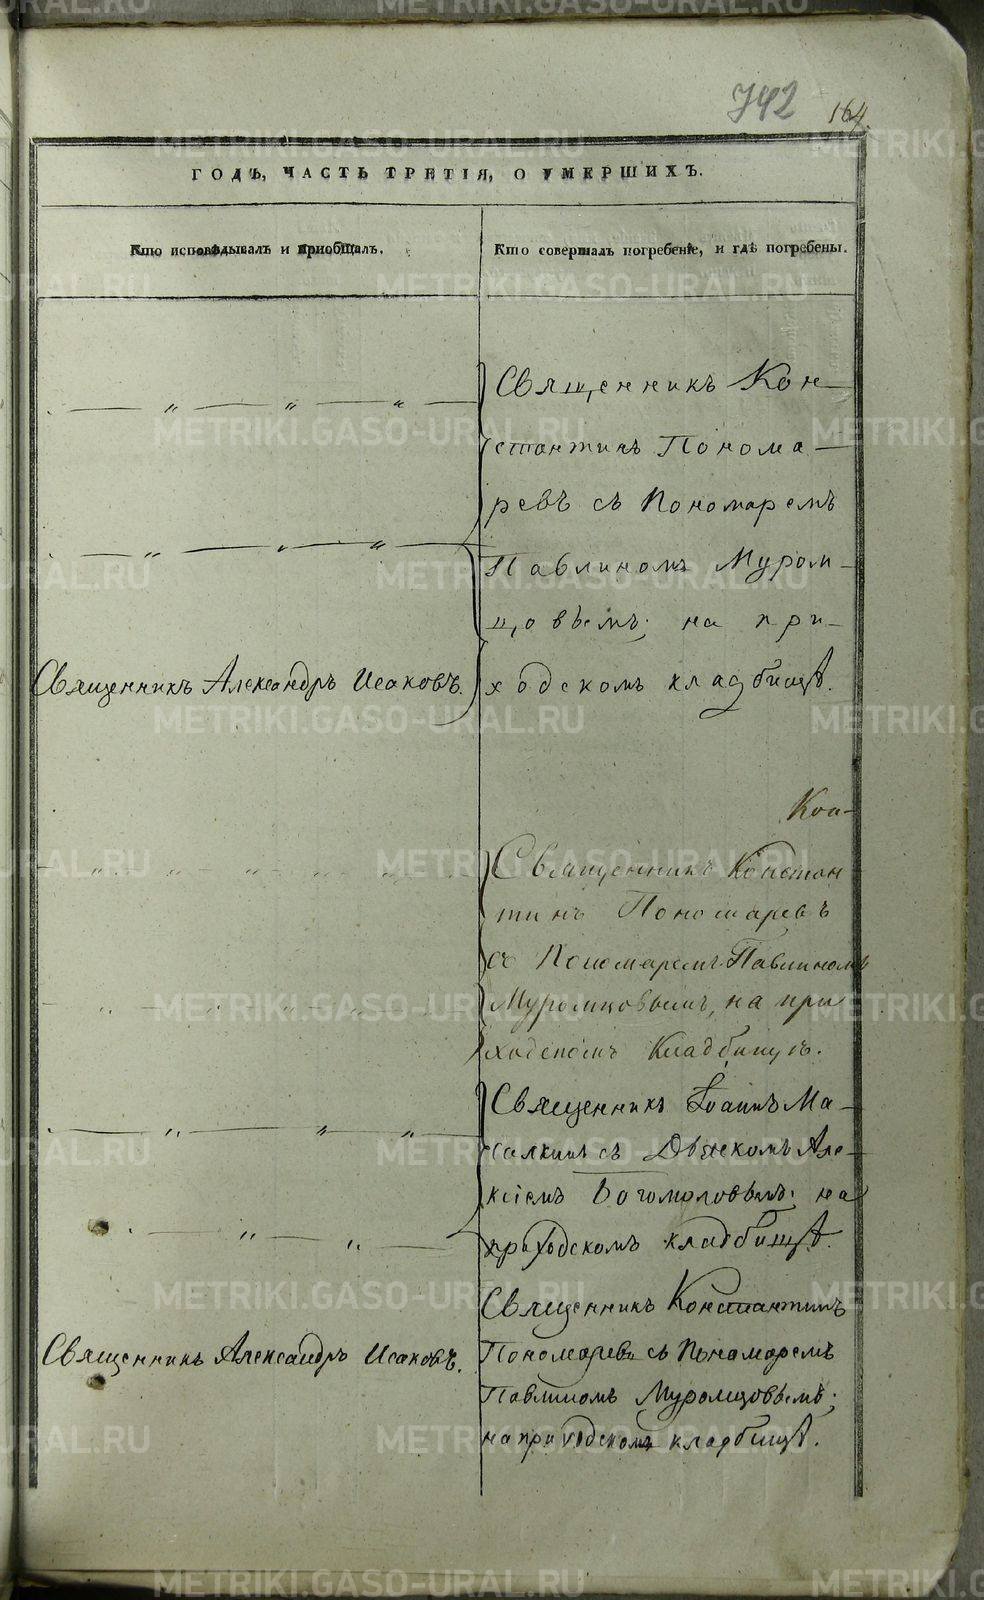 742 164.
ГОДЪ, ЧАСТЬ ТРЕТІЯ, О УМЕРШИХЪ.
Кто исповѣдывалъ и приобщалъ.
Кто совершалъ погребеніе, и гдѣ погребены.
Священникъ Кон-
стантинъ Понома-
ревъ съ Пономаремъ
Павлиномъ Муром-
цовымъ; на при-
Священникъ Александръ Исаковъ.
ходскомъ кладбищѣ.
Кон-
Священникъ Констан-
тинъ Пономаревъ
съ Пономаремъ Павлиномъ
Муромцовымъ, на при
ходскомъ Кладбищѣ.
Священникъ Іоаннъ Ма-
съ Дьячкомъ Але-
ксіемъ Богомоловымъ; на
приходскомъ кладбищѣ.
Священникъ Константинъ
Священникъ Александръ Исаковъ.
Пономаревъ съ Пономаремъ
Павлиномъ Муромцовымъ;
на приходскомъ кладбищѣ.
METRIKI.GASO-URAL.RU